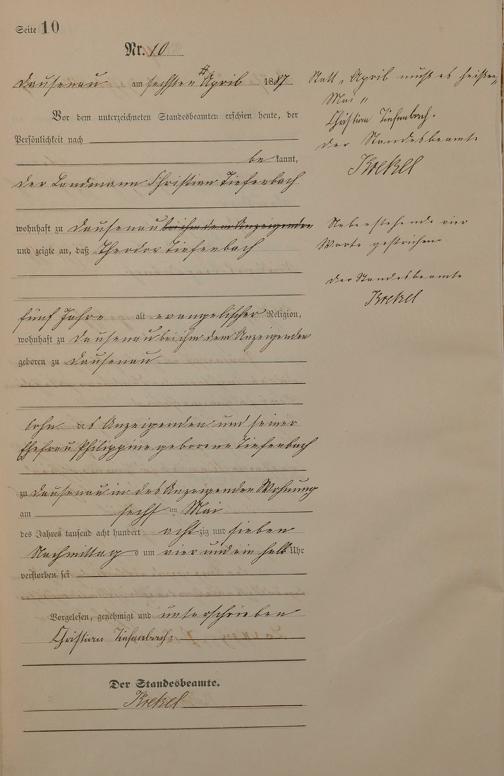 Seite 10
Nr. 10
Dausenau am sechsten # April 1887
Vor dem unterzeichneten Standesbeamten erschien heute, der
Persönlichkeit nach
be kannt,
der Landmann Christian Tiefenbach
wohnhaft zu Dausenau bei ihm dem Anzeigenden
und zeigte an, daß Theodor Tiefenbach
fünf Jahre alt evangelischer Religion,
wohnhaft zu Dausenau bei ihm dem Anzeigenden
geboren zu Dausenau
Sohn des Anzeigenden und seiner
Ehefrau Philippine geborene Tiefenbach
zu Dausenau in des Anzeigenden Wohnung
am sechsten Mai
des Jahres tausend acht hundert achtzig und sieben
Nachmittags um vier und ein halb Uhr
verstorben sei
Vorgelesen, genehmigt und unterschrieben
Christian Tiefenbach
Der Standesbeamte.
Krekel
Statt „April muß es heißen
Mai"
Christian Tiefenbach.
Der Standesbeamte
Krekel
Nebenstehende vier
Worte gestrichen
Der Standesbeamte
Krekel